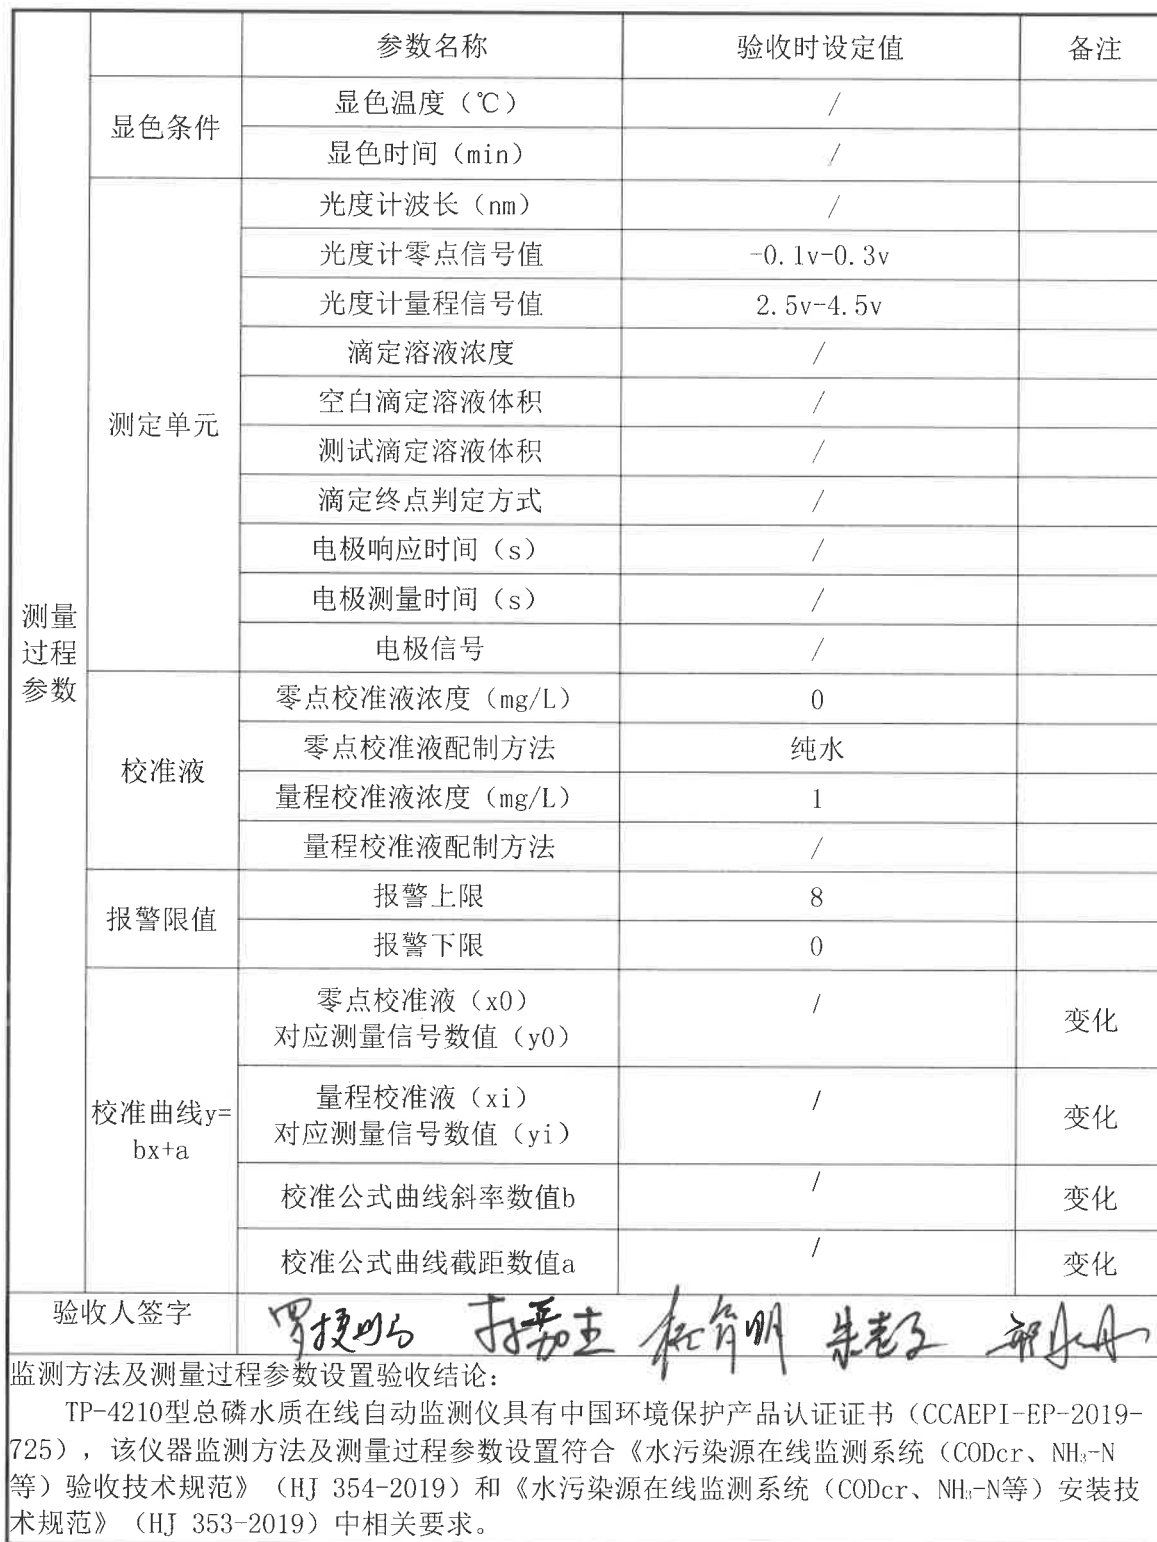 参数名称 验收时设定值 备注
显色条件
显色温度（℃） /
显色时间（min） /
测定单元
光度计波长（nm） /
光度计零点信号值 -0.1v-0.3v
光度计量程信号值 2.5v-4.5v
滴定溶液浓度 /
空白滴定溶液体积 /
测试滴定溶液体积 /
滴定终点判定方式 /
电极响应时间（s） /
电极测量时间（s） /
电极信号 /
测量
过程
参数
校准液
零点校准液浓度（mg/L） 0
零点校准液配制方法 纯水
量程校准液浓度（mg/L） 1
量程校准液配制方法 /
报警限值
报警上限 8
报警下限 0
校准曲线y=
bx+a
零点校准液（x0）
对应测量信号数值（y0） / 变化
量程校准液（xi）
对应测量信号数值（yi） / 变化
校准公式曲线斜率数值b / 变化
校准公式曲线截距数值a / 变化
验收人签字
监测方法及测量过程参数设置验收结论：
TP-4210型总磷水质在线自动监测仪具有中国环境保护产品认证证书（CCAEPI-EP-2019-
725），该仪器监测方法及测量过程参数设置符合《水污染源在线监测系统（CODcr、NH₃-N
等）验收技术规范》（HJ 354-2019）和《水污染源在线监测系统（CODcr、NH₃-N等）安装技
术规范》（HJ 353-2019）中相关要求。